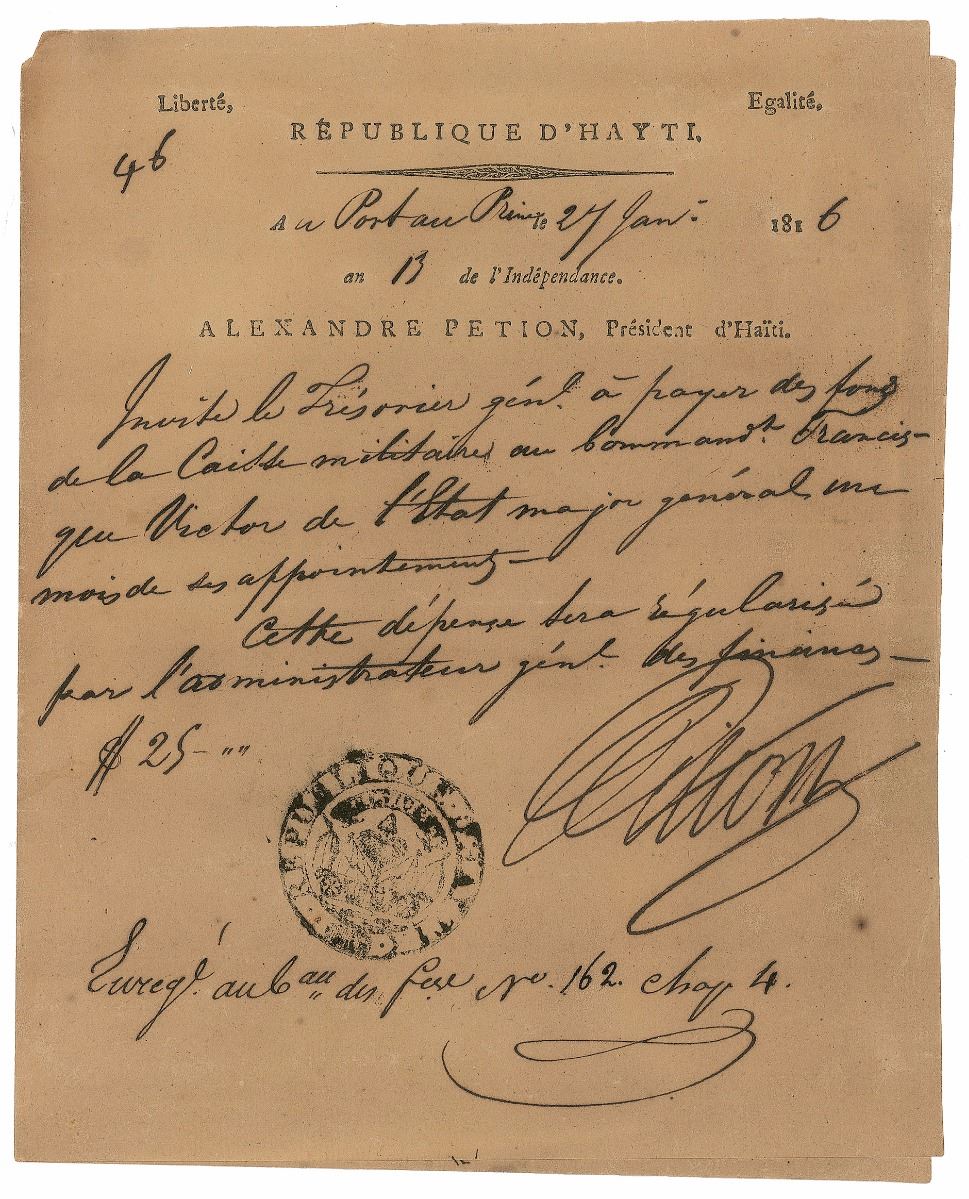 Liberté, Egalité.
RÉPUBLIQUE D'HAYTI.
46
Au Port au Prince le 27 Janr. 1816
an 13 de l'Indépendance.
ALEXANDRE PETION, Président d'Haïti.
Invite le Trésorier génl. à payer des fonds
de la Caisse militaire au Commandt. Francis-
que Victor de l'Etat major général un
mois de ses appointements—
Cette dépense sera régularisée
par l'administrateur génl. des finances—
$ 25 - „„
Pétion
RÉPUBLIQUE D'HAYTI
Enregé. au bau des No. 162. Chap 4.